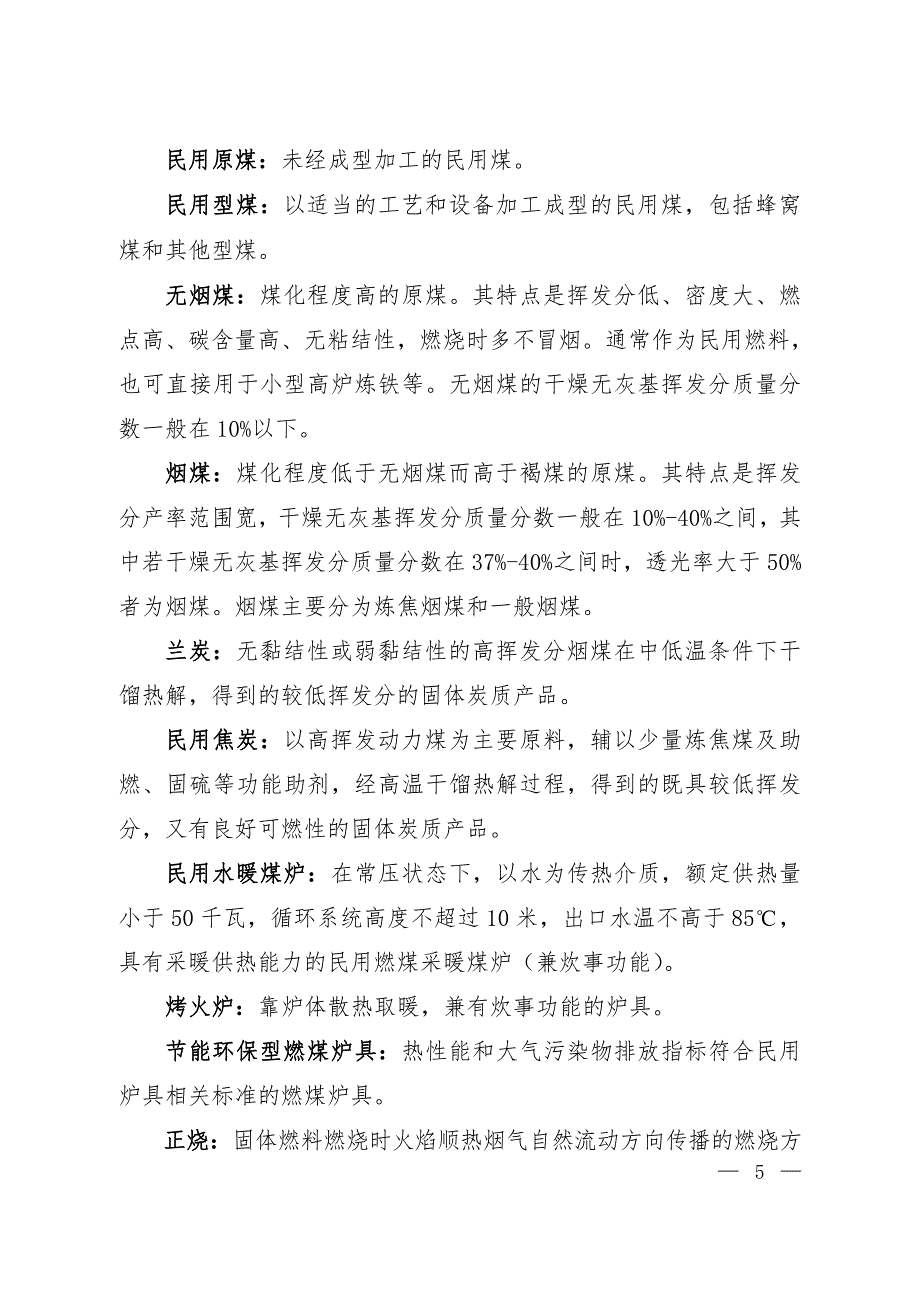 民用原煤：未经成型加工的民用煤。
民用型煤：以适当的工艺和设备加工成型的民用煤，包括蜂窝
煤和其他型煤。
无烟煤：煤化程度高的原煤。其特点是挥发分低、密度大、燃
点高、碳含量高、无粘结性，燃烧时多不冒烟。通常作为民用燃料，
也可直接用于小型高炉炼铁等。无烟煤的干燥无灰基挥发分质量分
数一般在10%以下。
烟煤：煤化程度低于无烟煤而高于褐煤的原煤。其特点是挥发
分产率范围宽，干燥无灰基挥发分质量分数一般在10%-40%之间，其
中若干燥无灰基挥发分质量分数在37%-40%之间时，透光率大于50%
者为烟煤。烟煤主要分为炼焦烟煤和一般烟煤。
兰炭：无黏结性或弱黏结性的高挥发分烟煤在中低温条件下干
馏热解，得到的较低挥发分的固体炭质产品。
民用焦炭：以高挥发动力煤为主要原料，辅以少量炼焦煤及助
燃、固硫等功能助剂，经高温干馏热解过程，得到的既具较低挥发
分，又有良好可燃性的固体炭质产品。
民用水暖煤炉：在常压状态下，以水为传热介质，额定供热量
小于50千瓦，循环系统高度不超过10米，出口水温不高于85℃，
具有采暖供热能力的民用燃煤采暖煤炉（兼炊事功能）。
烤火炉：靠炉体散热取暖，兼有炊事功能的炉具。
节能环保型燃煤炉具：热性能和大气污染物排放指标符合民用
炉具相关标准的燃煤炉具。
正烧：固体燃料燃烧时火焰顺热烟气自然流动方向传播的燃烧方
— 5 —